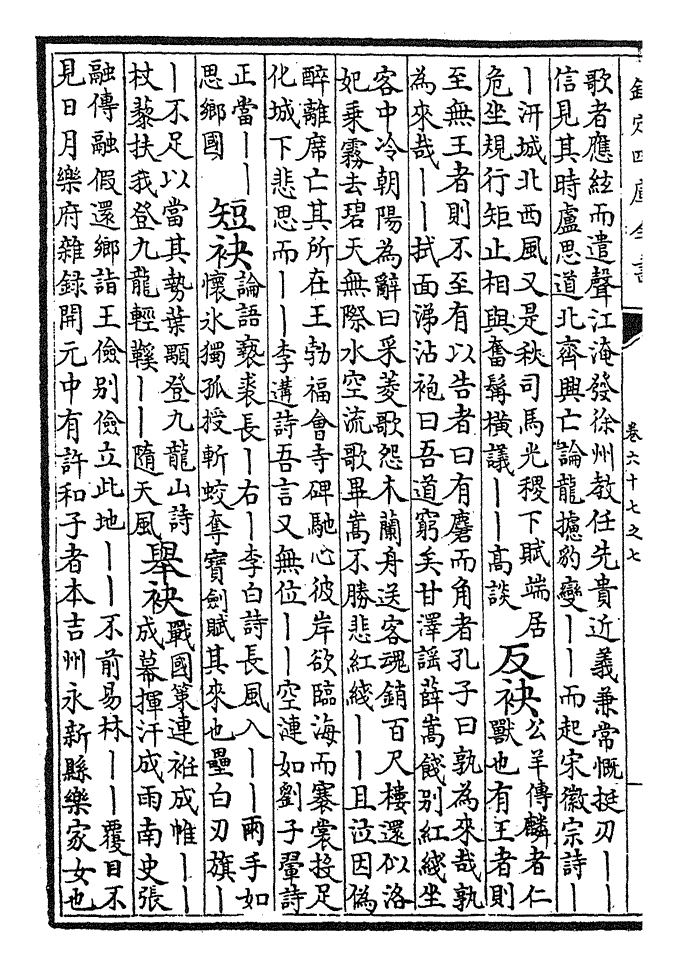 欽定四庫全書
卷六十七之七
歌者應絃而遣聲江淹發徐州教任先貴近義兼常慨挺刃丨丨
信見其時盧思道北齊興亡論龍攄豹變丨丨而起宋徽宗詩丨
丨汧城北西風又是秋司馬光稷下賦端居
危坐規行矩止相與奮髯橫議丨丨高談
反袂
公羊傳麟者仁
獸也有王者則
至無王者則不至有以告者曰有麏而角者孔子曰孰為來哉孰
為來哉丨丨拭面涕沾袍曰吾道窮矣甘澤謠薛嵩餞別紅綫坐
客中冷朝陽為辭曰采菱歌怨木蘭舟送客魂銷百尺樓還似洛
妃乗霧去碧天無際水空流歌畢嵩不勝悲紅綫丨丨且泣因偽
醉離席亡其所在王勃福會寺碑馳心彼岸欲臨海而褰裳投足
化城下悲思而丨丨李遘詩吾言又無位丨丨空漣如劉子翬詩
正當丨丨
思鄉國
短袂
論語褻裘長丨右丨李白詩長風入丨丨兩手如
懷氷獨孤授斬蛟奪寶劍賦其來也壘白刃旗丨
丨不足以當其勢葉顒登九龍山詩
杖藜扶我登九龍輕鞵丨丨隨天風
舉袂
戰國策連袵成帷丨丨
成幕揮汗成雨南史張
融傳融假還鄉詣王儉別儉立此地丨丨不前易林丨丨覆目不
見日月樂府雜録開元中有許和子者本吉州永新縣樂家女也